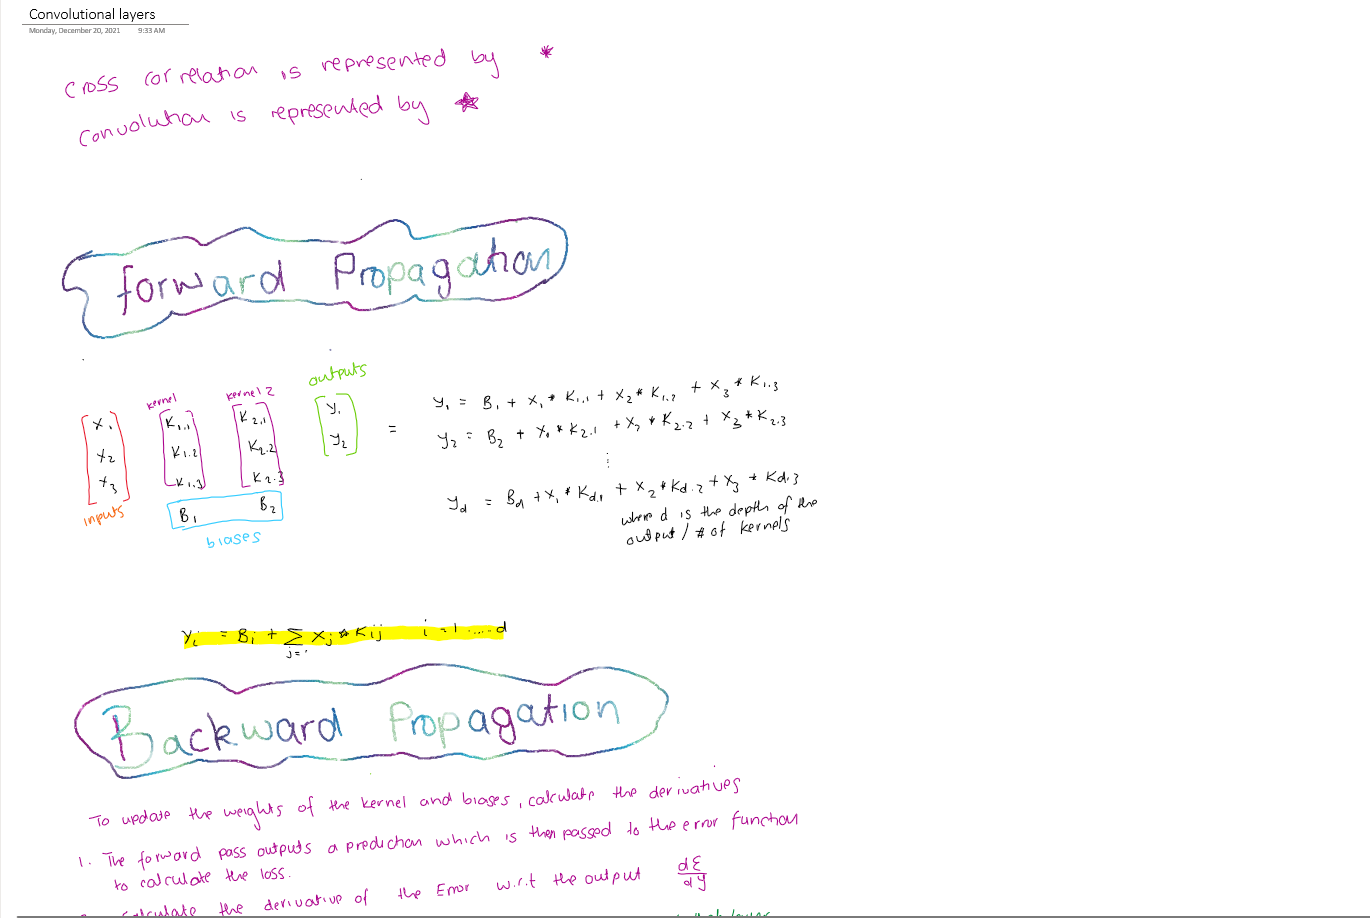 Convolutional layers
Monday, December 20, 2021 9:33 AM
Cross correlation is represented by *
Convolution is represented by ☆
Forward Propagation
outputs
kernel
kernel 2
x₁ K₁.₁ K₂.₁ y₁
x₂ K₁.₂ K₂.₂ y₂ =
x₃ K₁.₃ K₂.₃
inputs
B₁ B₂
biases
y₁ = B₁ + x₁ * K₁.₁ + x₂ * K₁.₂ + x₃ * K₁.₃
y₂ = B₂ + x₁ * K₂.₁ + x₂ * K₂.₂ + x₃ * K₂.₃
⋮
y_d = B_d + x₁ * K_d.₁ + x₂ * K_d.₂ + x₃ * K_d.₃
where d is the depth of the
output / # of kernels
Yᵢ = Bᵢ + Σ Xⱼ ☆ Kᵢⱼ i = 1 ..... d
j=1
Backward Propagation
To update the weights of the kernel and biases, calculate the derivatives
1. The forward pass outputs a prediction which is then passed to the error function
to calculate the loss.
calculate the derivative of the Error w.r.t the output dE/dY